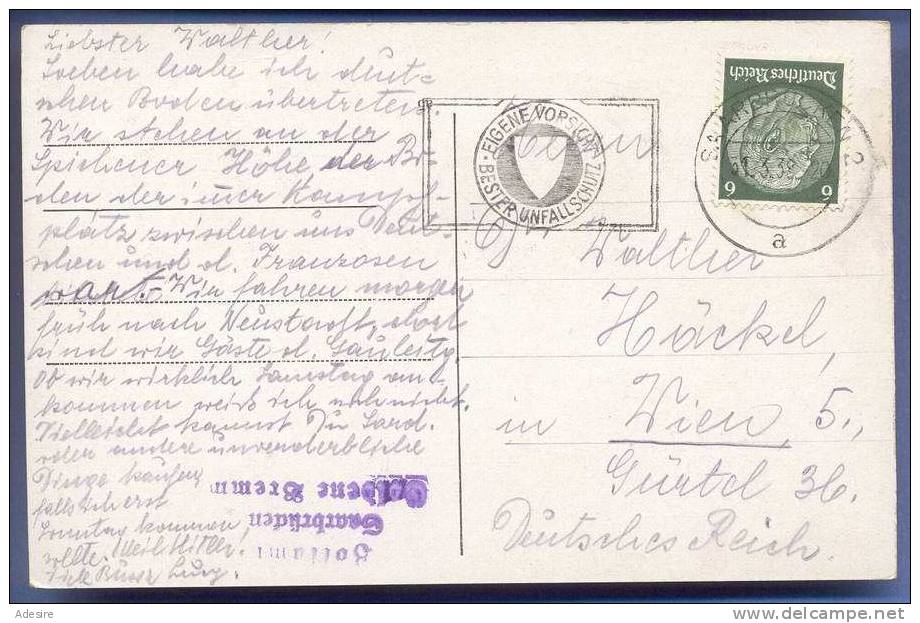 Liebster Walther!
Soeben habe ich deut-
schen Boden übertreten.
Wir stehen an der
Spicherer Höhe, der
den der
platz zwischen uns Deut-
schen und d. Franzosen
war. Wir fahren morgen
früh nach Neustadt, dort
sind wir Gäste d. Gauleitg.
Ob wir wirklich Samstag an-
kommen weiß ich noch nicht.
Vielleicht kannst Du Sard.
oder andere unverderbliche
Dinge kaufen
falls ich erst
Sonntag kommen
sollte. Heil Hitler!
Viele
Zollamt
Saarbrücken
Goldene Bremm
EIGENE VORSICHT
BESTER UNFALLSCHUTZ
SAARBRÜCKEN 2
3.39
a
Deutsches Reich
6 6
Herrn
Walther
Häckel,
in Wien 5.,
Gürtel 36.
Deutsches Reich.
Adesire
delcampe.net